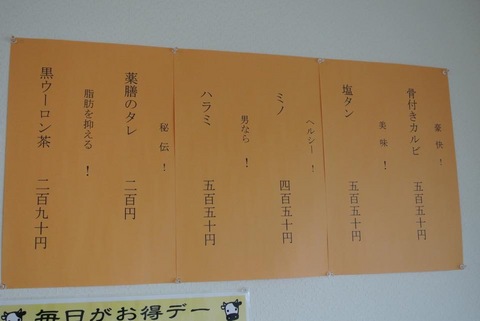 豪快！
骨付きカルビ 五百五十円
美味！
塩タン 五百五十円
ヘルシー！
ミノ 四百五十円
男なら！
ハラミ 五百五十円
秘伝！
薬膳のタレ 二百円
脂肪を抑える！
黒ウーロン茶 二百九十円
毎日がお得デー